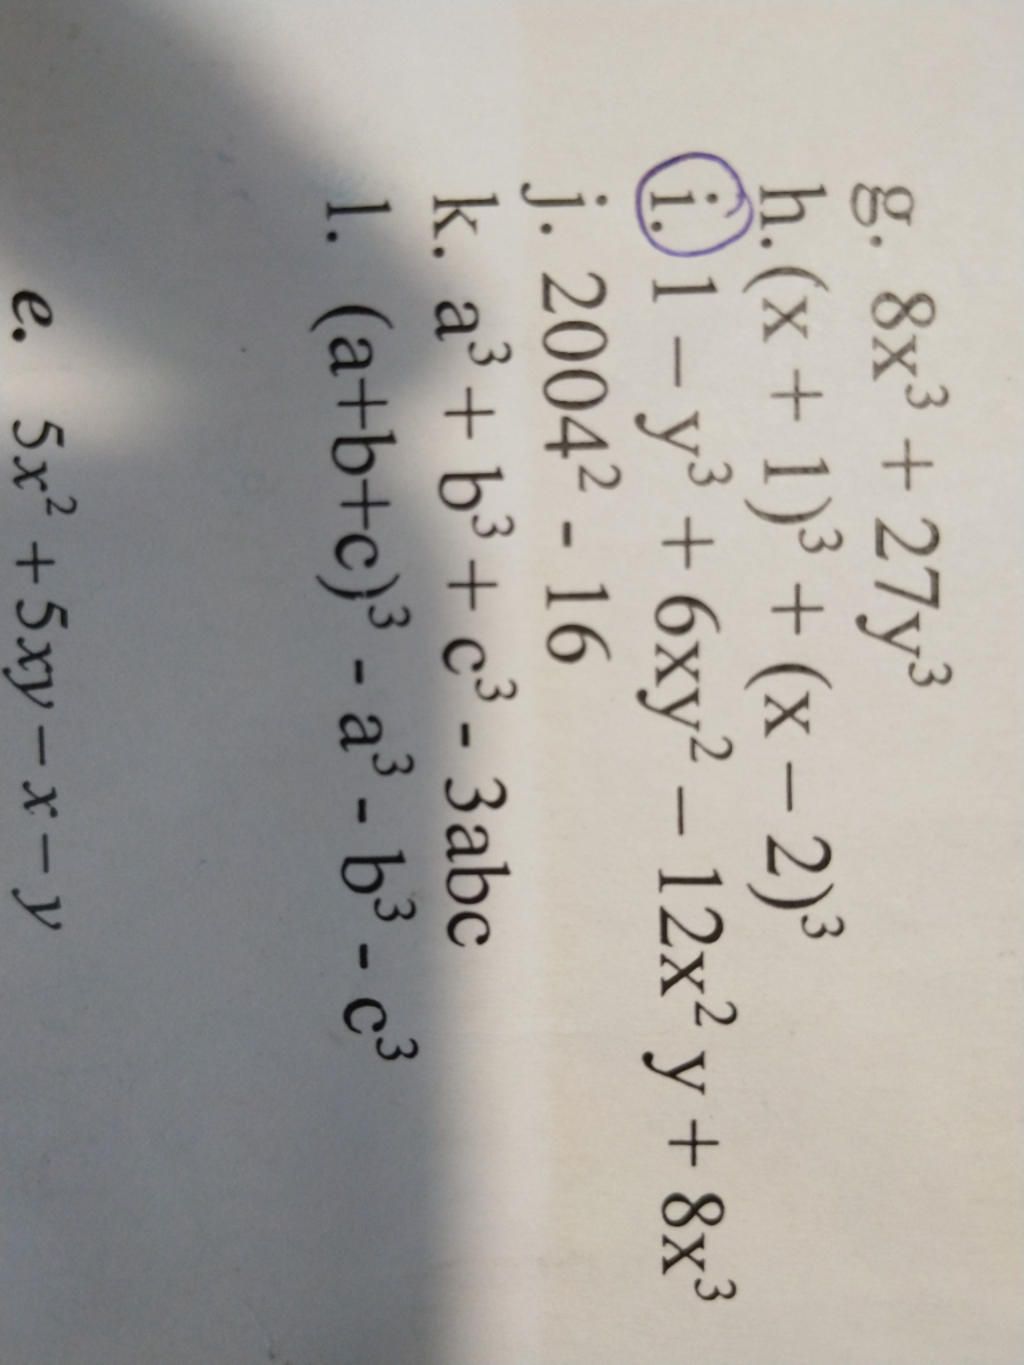 g. 8x³ + 27y³
h.(x + 1)³ + (x – 2)³
i. 1 – y³ + 6xy² – 12x² y + 8x³
j. 2004² - 16
k. a³ + b³ + c³ - 3abc
l. (a+b+c)³ - a³ - b³ - c³
e. 5x² + 5xy – x – y